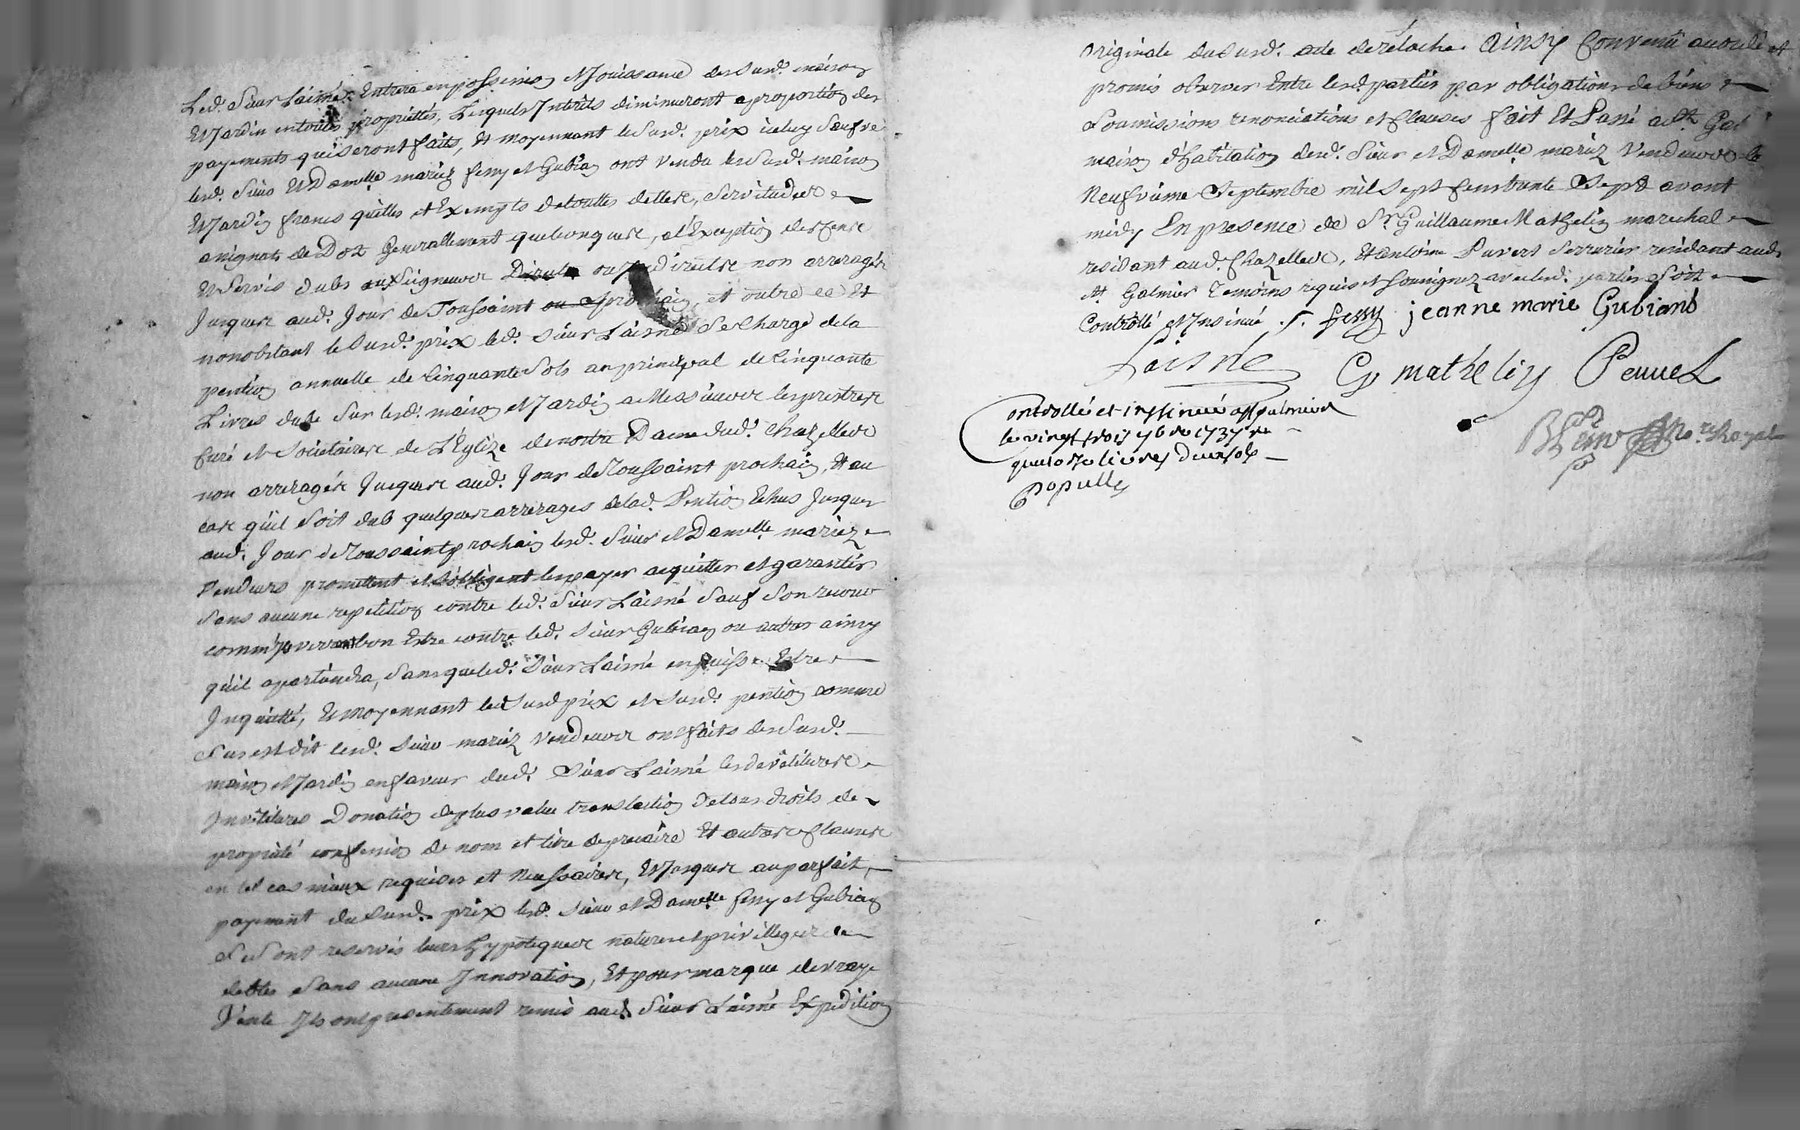 Led. Sieur Laisné Entrera en possession et Jouissance desSusd. maison
Et Jardin en toutes proprietés, Lesquels Interets diminueront aproportion des
payements qui seront faits, Et moyennant leSusd. prix
lesd. Sieur Et Damelle mariez fessy et Gubian ont vendu lesSusd. maison
Et Jardin francs quittes et Exempts detouttes dettes, Servitudes
assignats de Dot Generallement quelconques, al'Exception des Cens
Et Servis dubs aux Seigneurs Directs non arreragés
Jusques aud. Jour de Toussaint prochain, et outre ce Et
nonobstant leSusd. prix led. Sieur Laisné Se Charge dela
pention annuelle de Cinquante Sols au principal de Cinquante
Livres dube Sur lesd. maison et Jardin a Messieurs les prestres
Curé et Societaires de L'Eglize de nostre Dame dud. Chazelles
non arreragés Jusques aud. Jour de Toussaint prochain, Et au
cas qu'il Soit dub quelques arrerages delad. Pention Echus Jusques
aud. Jour de Toussaint prochain lesd. Sieur et Damelle mariez
Vendeurs promettent et s'obligent les payer acquitter et garantir
Sans aucune repetition contre led. Sieur Laisné Sauf Son recours
comm'jls verront bon Estre contre led. Sieur Gubian ou autres ainsy
qu'il apartiendra, Sans que led. Sieur Laisné en puisse Estre
Inquietté, Et moyennant led Susd prix et Susd. pention comme
Sus est dit lesd. Sieur mariez Vendeurs ont faits des Susd.
maison et Jardin en faveur dud. Sieur Laisné les devétitures
Jnvétitures Donation de plus value translation de tous droits de
proprieté confession de nom et titre de precaire Et autres Clauses
en tel cas mieux requises et Necessaires, Et Jusques au parfait
payement du Susd. prix lesd. Sieur et Damelle fessy et Gubian
Se Sont reservés leurs hypoteques natures et privilleges de
dettes Sans aucune Jnnovation, Et pour marque de vraye
Vente Jls ont presentement remis aud. Sieur Laisné Expedition
Originale du Susd. acte de relache. Ainsy Convenu accordé et
promis observer Entre lesd parties par obligations de biens
Soumissions renonciations et Clauses fait Et Passé a St. Gal
maison d'habitation desd. Sieur et Damelle mariez Vendeurs le
Neufvieme Septembre mil Sept Cens trente Sept avant
midy En presence de Sr. Guillaume Mathelin marechal
residant aud. Chazelles, Et antoine Peuvet Serrurier residant aud.
St. Galmier Temoins requis et Soussignez avec lesd. parties Soit
Controllé et Jnsinué. fessy jeanne marie Gubiand
Laisné G mathelin Peuvet
Controllé et insinué a St galmier
le vingt trois 7bre 1737 Re
quatorze livres Deux sols
Populle
no.re Royal